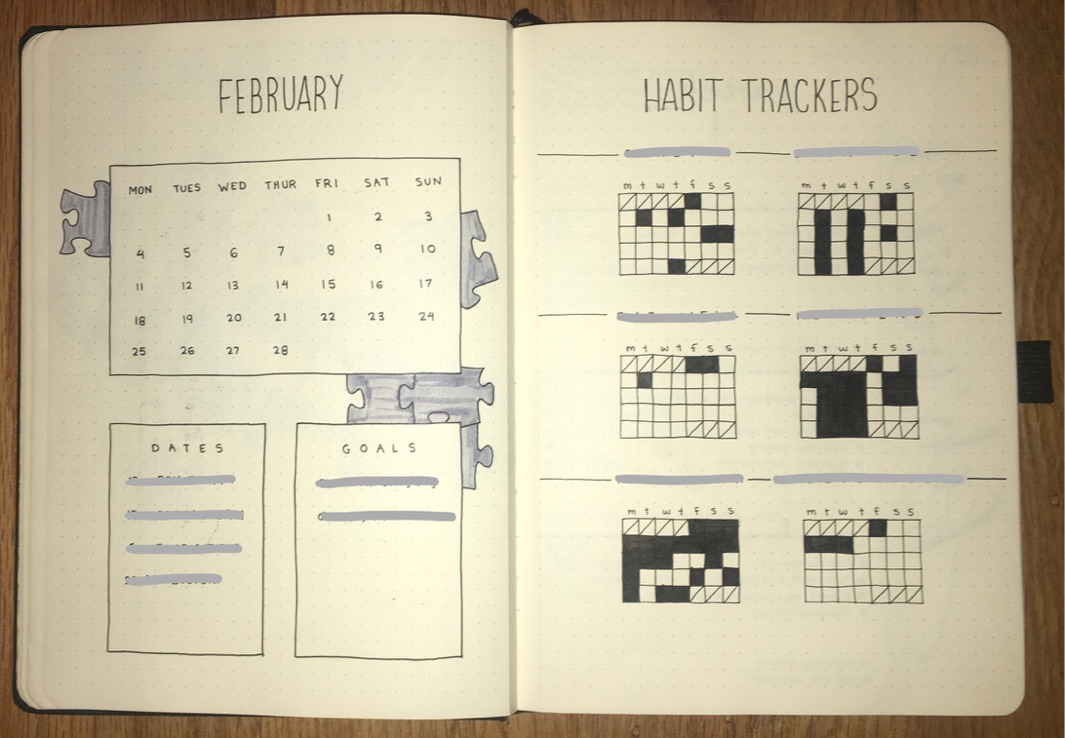 FEBRUARY
MON TUES WED THUR FRI SAT SUN
1 2 3
4 5 6 7 8 9 10
11 12 13 14 15 16 17
18 19 20 21 22 23 24
25 26 27 28
DATES
GOALS
HABIT TRACKERS
m t w t f s s
m t w t f s s
m t w t f s s
m t w t f s s
m t w t f s s
m t w t f s s